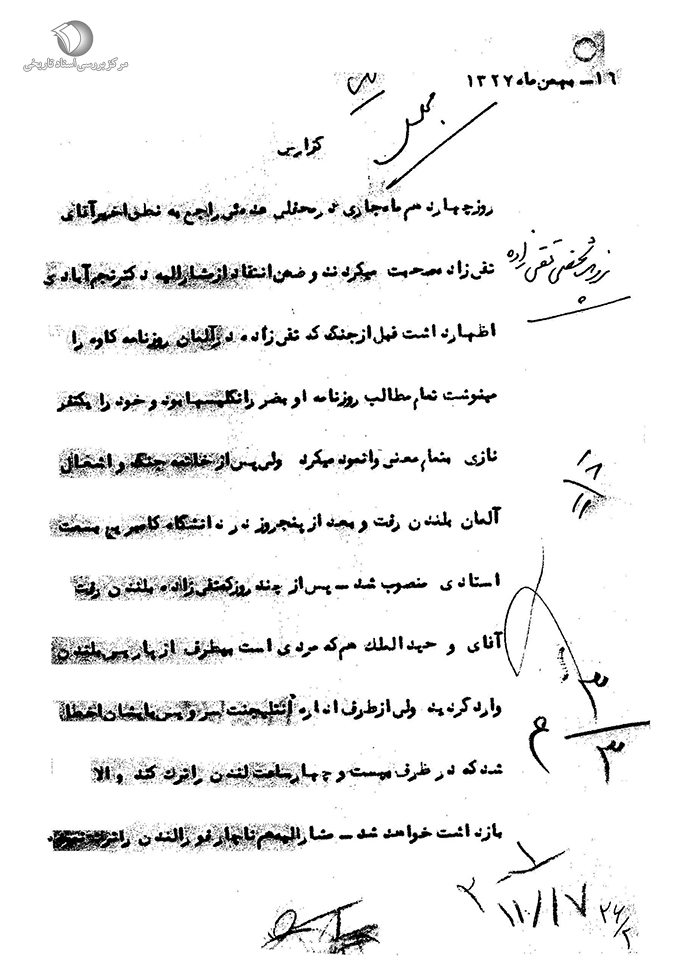 مرکز بررسی اسناد تاریخی
۱۶ـ بهمن ماه ۱۳۲۷
مجلس
گزارش
روز چهاردهم ماه جاری در محفلی عده‌ئی راجع به نطق اخیر آقای
تقی زاده صحبت میکردند و ضمن انتقاد از مشارالیه دکتر نجم آبادی
اظهار داشت قبل از جنگ که تقی زاده در آلمان روزنامه کاوه را
مینوشت تمام مطالب روزنامه او بضرر انگلیسها بود و خود را یکنفر
نازی بتمام معنی وانمود میکرد ولی پس از خاتمه جنگ و اشغال
آلمان بلندن رفت و بعد از پنجروز در دانشگاه کامبریج بسمت
استادی منصوب شد ـ پس از چند روز که تقی زاده بلندن رفت
آقای وحیدالملك هم که مردی است بیطرف از پاریس بلندن
وارد گردید ولی از طرف اداره انتلیجنت سرویس بایشان اخطار
شد که در ظرف بیست و چهار ساعت لندن را ترك کند والا
بازداشت خواهد شد ـ مشارالیه هم ناچار فورا لندن را ترك نمود.
پرونده شخصی تقی زاده
۱۸
۱۱
۳
۳
۱۱/۱۷
۲۶/۲